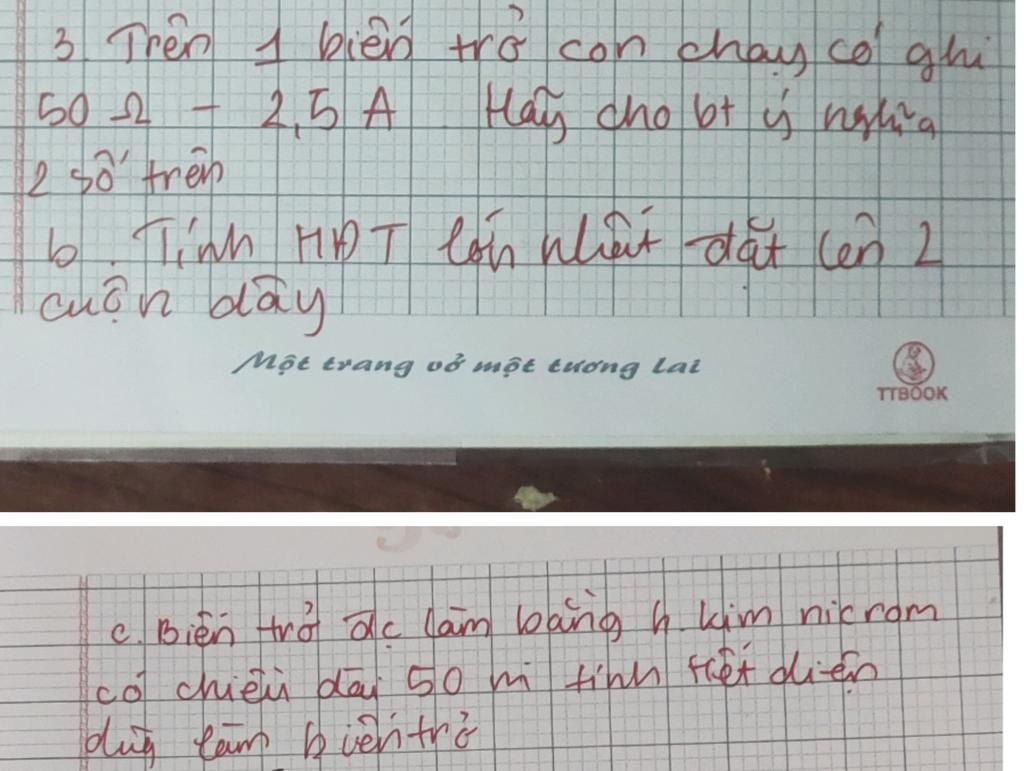 3. Trên 1 biến trở con chạy có ghi
50 Ω - 2,5 A. Hãy cho bt ý nghĩa
2 số trên
b. Tính HĐT lớn nhất đặt lên 2
cuộn dây
Một trang vở một tương lai
TTBOOK
c. Biến trở đc làm bằng h. kim nicrom
có chiều dài 50 m tính tiết diện
dùg làm biến trở